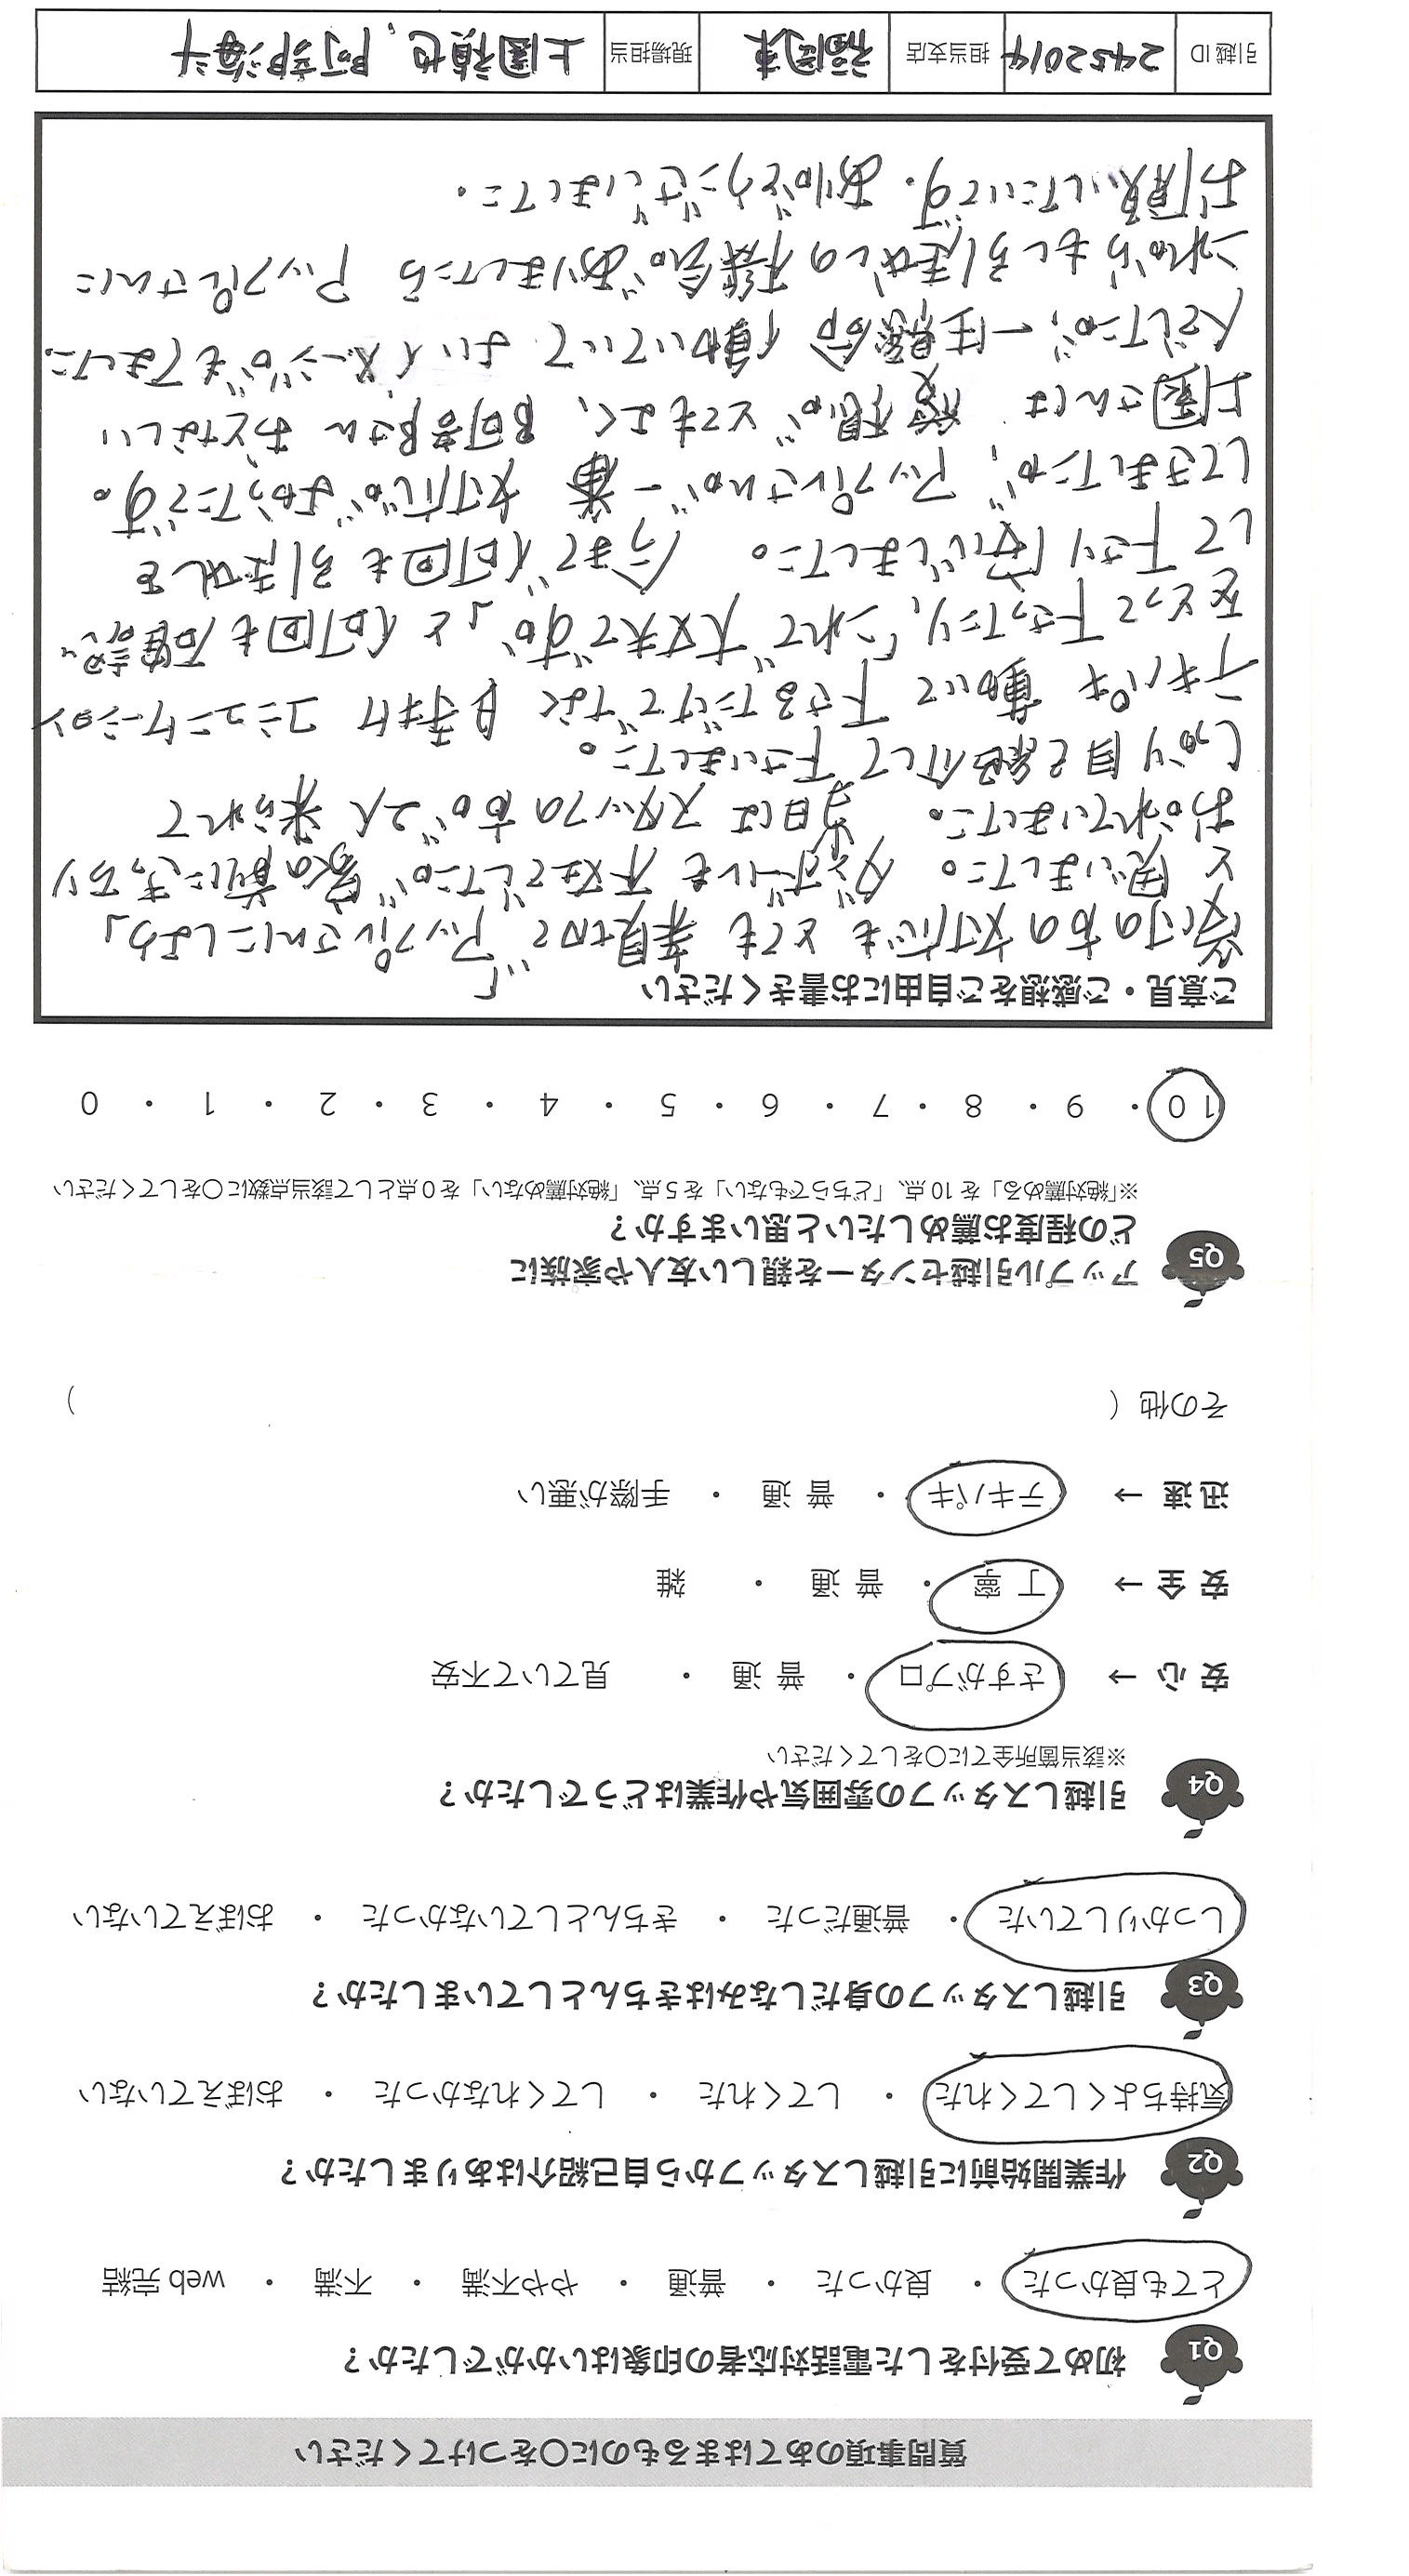 質問事項のあてはまるものに〇をつけてください
Q1 初めて受付をした電話対応者の印象はいかがでしたか？
とても良かった ・ 良かった ・ 普通 ・ やや不満 ・ 不満 ・ web 完結
Q2 作業開始前に引越しスタッフから自己紹介はありましたか？
気持ちよくしてくれた ・ してくれた ・ してくれなかった ・ おぼえていない
Q3 引越しスタッフの身だしなみはきちんとしていましたか？
しっかりしていた ・ 普通だった ・ きちんとしていなかった ・ おぼえていない
Q4 引越しスタッフの雰囲気や作業はどうでしたか？
※該当箇所全てに〇をしてください
安 心 → さすがプロ ・ 普 通 ・ 見ていて不安
安 全 → 丁 寧 ・ 普 通 ・ 雑
迅 速 → テキパキ ・ 普 通 ・ 手際が悪い
その他（ ）
Q5 アップル引越センターを親しい友人や家族に
どの程度お薦めしたいと思いますか？
※「絶対薦める」を 10 点、「どちらでもない」を 5 点、「絶対薦めない」を 0 点として該当点数に〇をしてください
10 ・ 9 ・ 8 ・ 7 ・ 6 ・ 5 ・ 4 ・ 3 ・ 2 ・ 1 ・ 0
ご意見・ご感想をご自由にお書きください
の方の対応もとても親切で「アップルさんにしよう」
と思いました。ダンボールも不在でしたが家の前にきっちり
おかれていました。当日はスタッフの方が2人来られて
しっかり自己紹介して下さいました。
テキパキ動いて下さるだけでなく目手まけコミュニケーション
をとって下さったり、「これで大丈夫ですか」と何回も確認
して下さり安心しました。今まで何回も引越しを
してきましたが、アップルさんが一番対応がよかったです。
上園さんは愛想がとてもよく、阿部さんおとなしい
人でしたが、一生懸命働いていてよいイメージがもてました。
これからもし引越しの機会がありましたらアップルさんに
お願いしたいです。ありがとうございました。
引越 ID 2452014 担当支店 福岡東 現場担当 上園禎也、阿部海斗